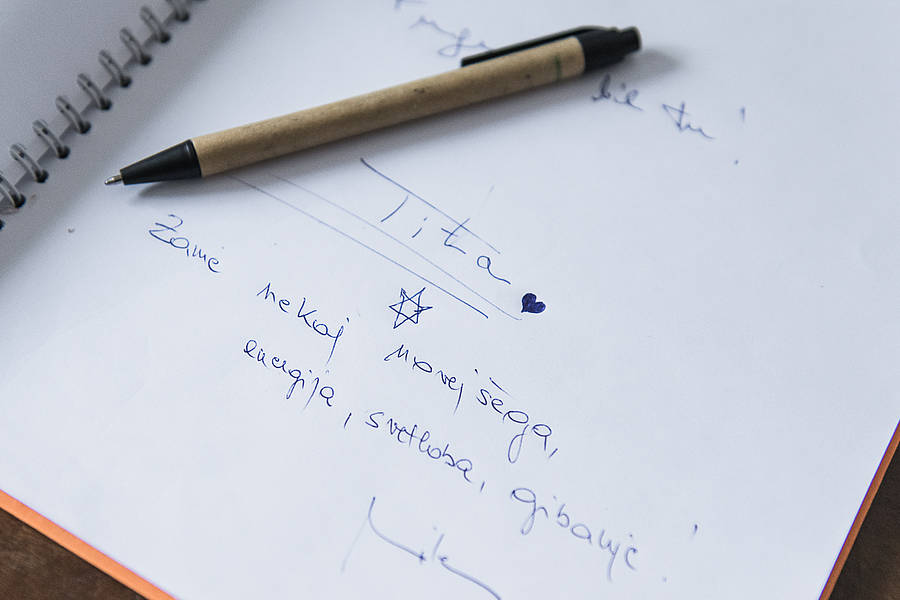 bil tu!
Tita
Zame nekaj novejšega,
energija, svetloba, gibanje!